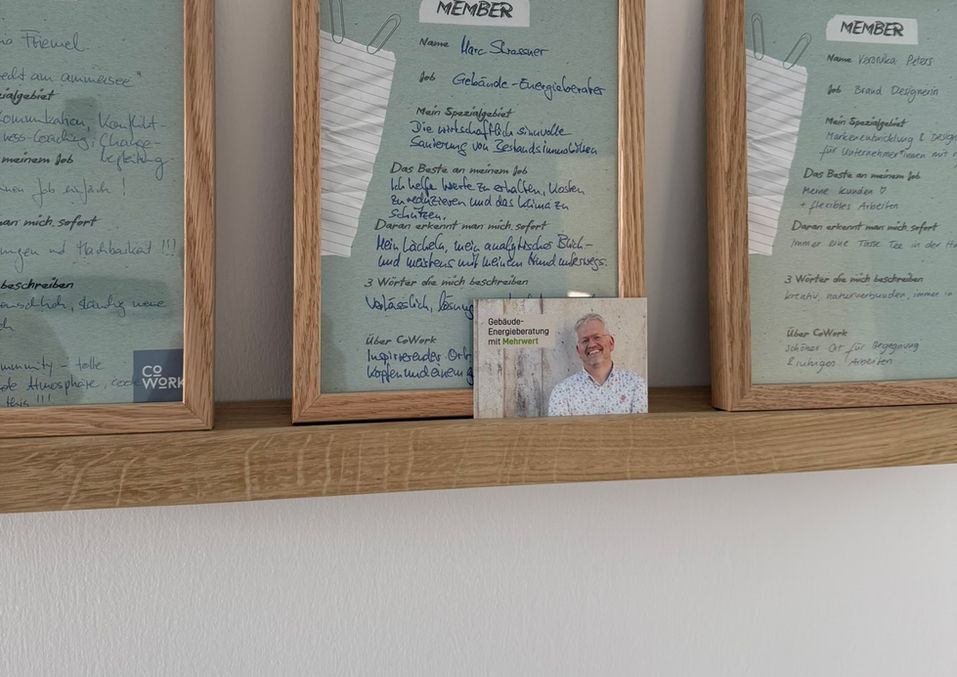 Friemel
echt am ammersee"
zialgebiet
Kommunikation, Konflikt-
ness-Coaching, Change-
begleitung
meinem Job
Job einfach!
man mich sofort
ungen und Machbarkeit !!!
beschreiben
ständig neue
munity - tolle
Atmosphäre,
this !!!
CO
WORK
MEMBER
Name Marc Strassner
Job Gebäude-Energieberater
Mein Spezialgebiet
Die wirtschaftlich sinnvolle
Sanierung von Bestandsimmobilien
Das Beste an meinem Job
Ich helfe Werte zu erhalten, Kosten
zu reduzieren und das Klima zu
schützen.
Daran erkennt man mich sofort
Mein Lächeln, mein analytischer Blick -
und meistens mit meinem Hund unterwegs.
3 Wörter die mich beschreiben
Verlässlich,
Über CoWork
Inspirierender Ort
Köpfen und einem
Gebäude-
Energieberatung
mit Mehrwert
MEMBER
Name Veronika Peters
Job Brand Designerin
Mein Spezialgebiet
Markenentwicklung & Design
für Unternehmer*innen mit
Das Beste an meinem Job
Meine Kunden ♡
+ flexibles Arbeiten
Daran erkennt man mich sofort
Immer eine Tasse Tee in der
3 Wörter die mich beschreiben
kreativ, naturverbunden, immer in
Über CoWork
Schöner Ort für Begegnung
& ruhiges Arbeiten